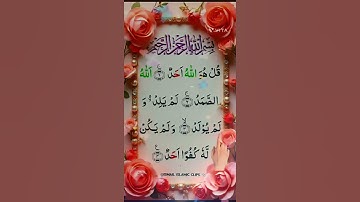 بِسْمِ اللهِ الرَّحْمٰنِ الرَّحِيْمِ
قُلْ هُوَ اللهُ اَحَدٌ ۝١ اَللهُ
الصَّمَدُ ۝٢ لَمْ يَلِدْ ۙ وَ
لَمْ يُوْلَدْ ۝٣ وَلَمْ يَكُنْ
لَّهٗ كُفُوًا اَحَدٌ ۝٤
USMAIL ISLAMIC CLIPS